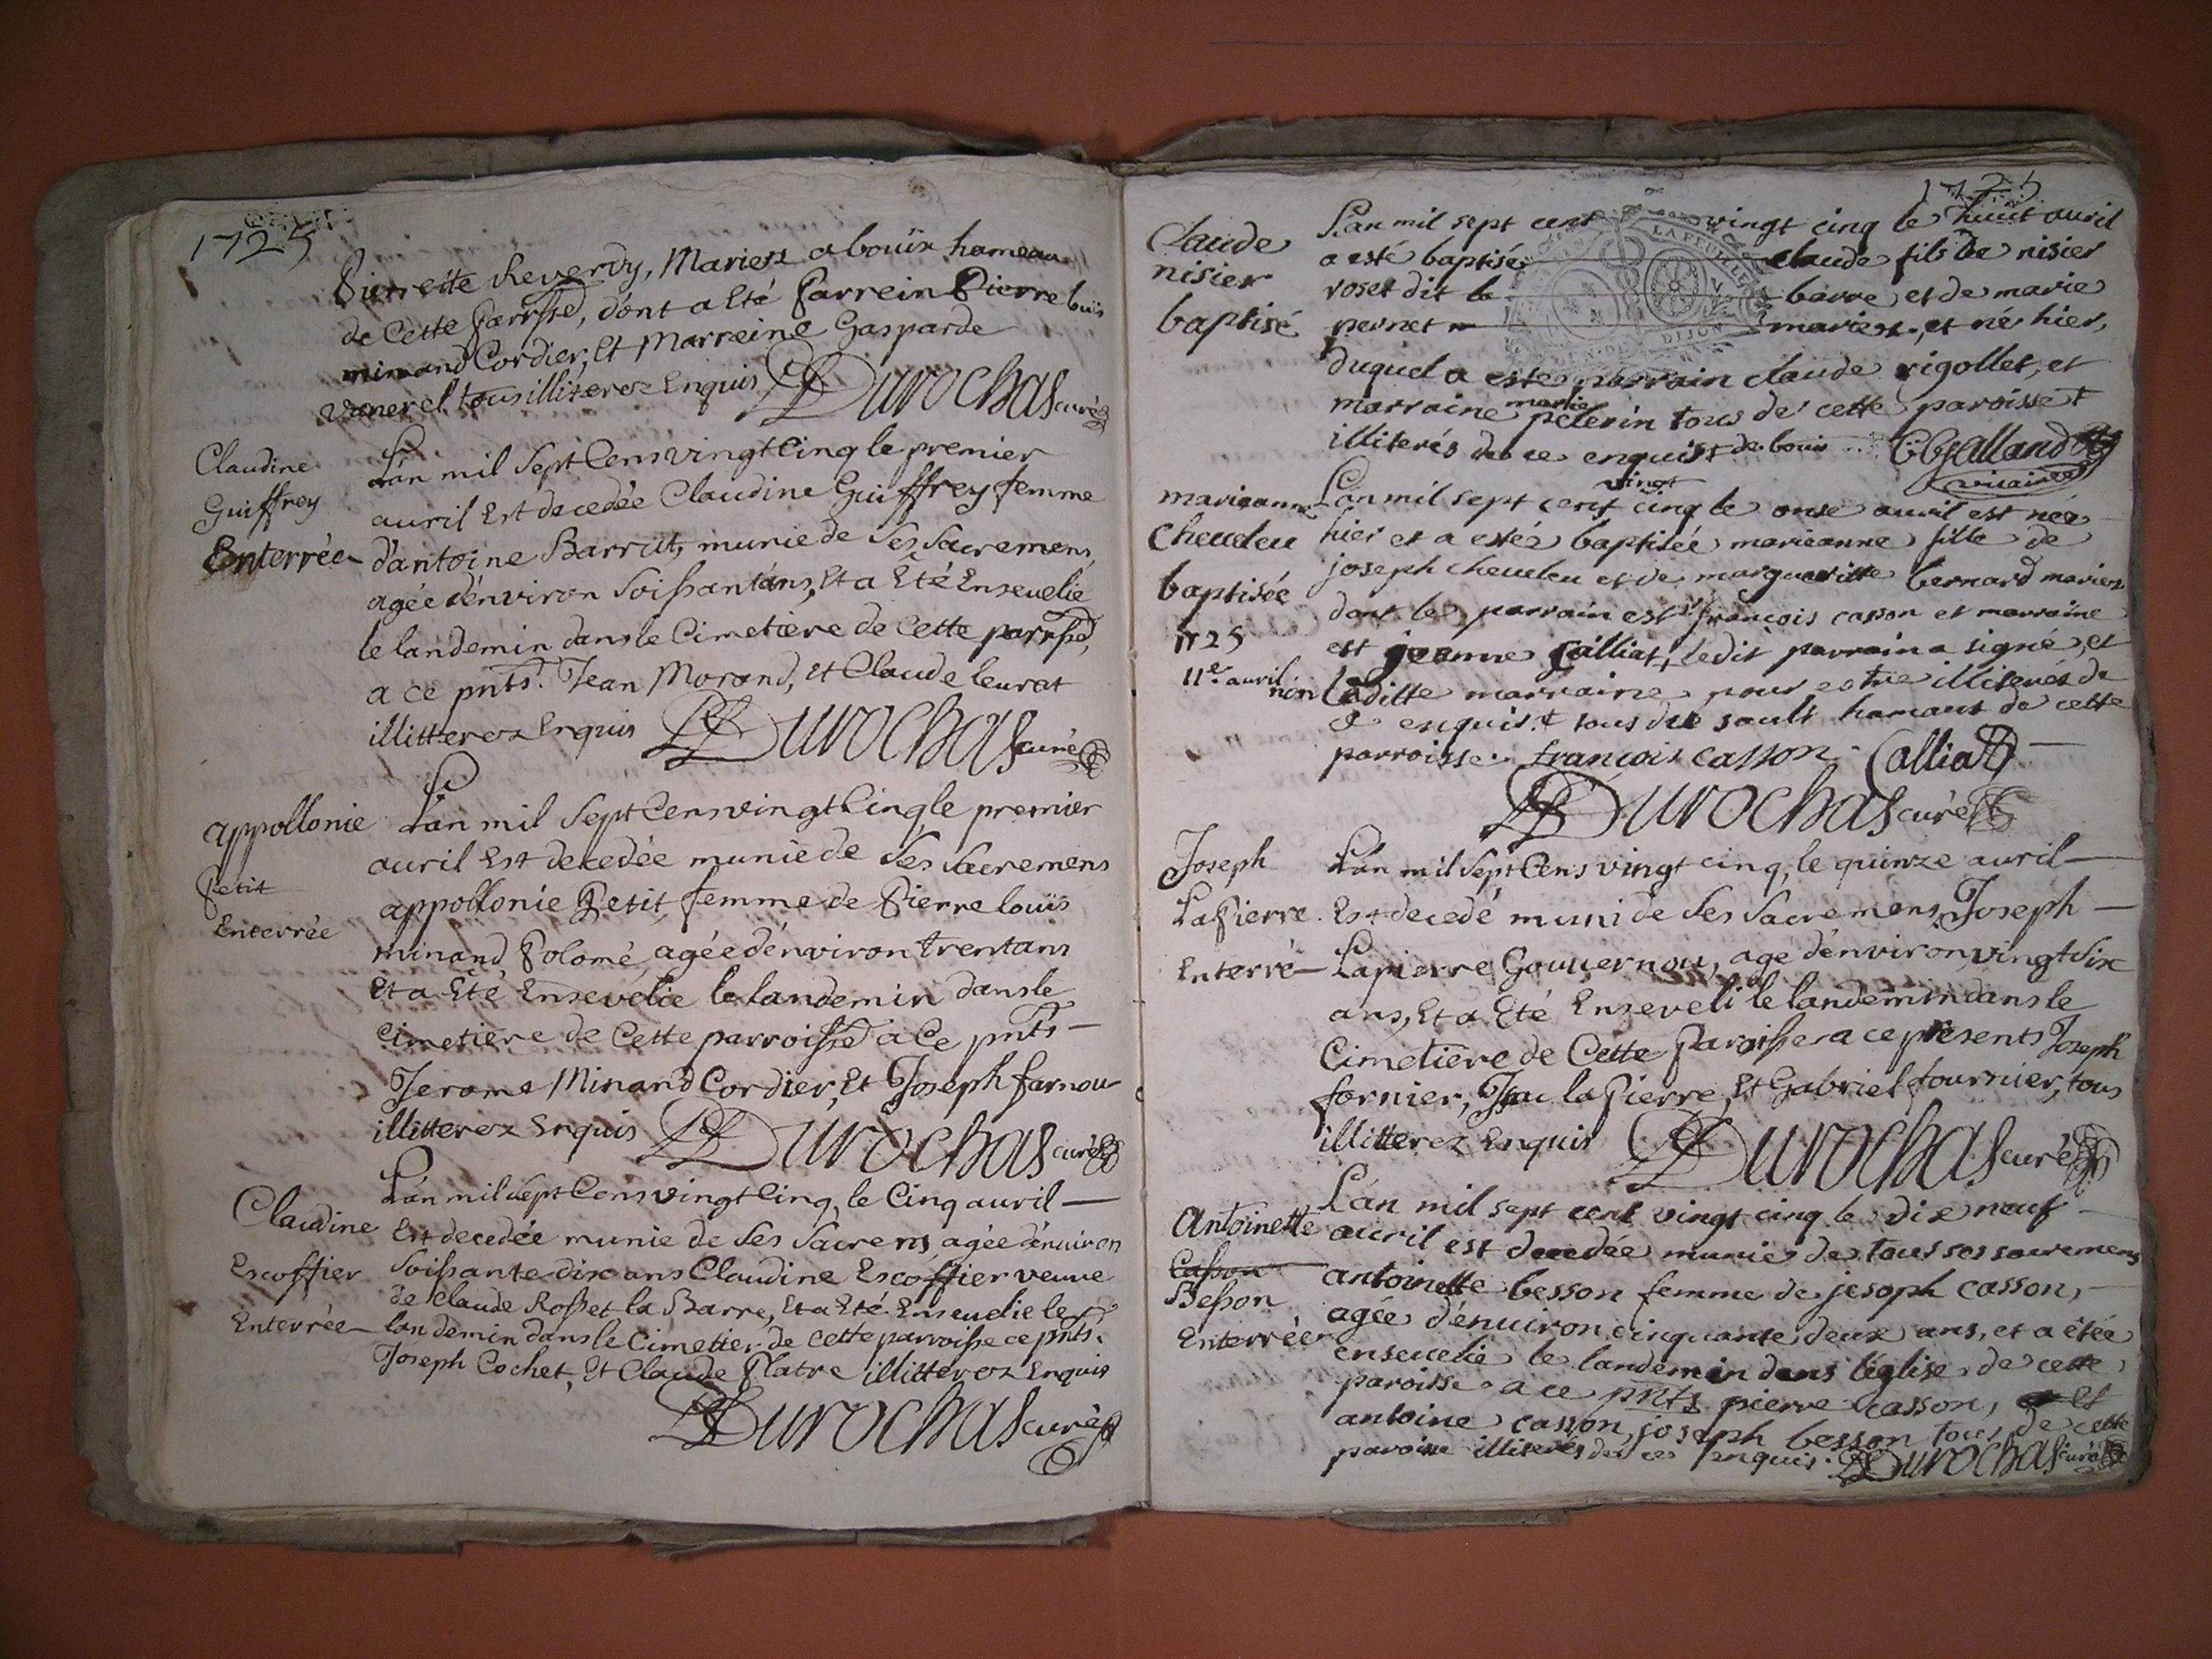 1725
Pierrette Reverdy, Mariez a bouïx hameau
de Cette parrsse, dont a Eté Parrein Pierre louïs
minand Cordier, Et Marreine Gasparde
vanerel tous illiterez Enquis DDurochas curé
Claudine
Guiffrey
Enterrée
Lán mil Sept Cens vingt Cinq le premier
auril Est decedée Claudine Guiffrey femme
d'antoine Barrut, munie de Ses Sacremens,
agée dénviron Soissantáns, Et a Eté Enseuelie
le landemin dans le Cimetiere de Cette parrsse,
a ce pnts. Jean Morand, et Claude leurat
illitterez Enquis DDurochas curé
appollonie
Petit
Enterrée
Lán mil Sept Cens vingt Cinq le premier
auril Est decedée munie de Ses Sacremens
appollonie Petit femme de Pierre louïs
minand Polomé, agée dénviron trentans
Et a Eté Ensevelie le landemin dans le
Cimetiere de Cette parroisse a Ce pnts
Jerome Minand Cordier, Et Joseph farnou
illitterez Enquis DDurochas curé
Claudine
Escoffier
Enterrée
Lán mil Sept Cens vingt Cinq, le Cinq auril
Est decedée munie de Ses Sacrens agée dénuiron
Soissante dix ans Claudine Escoffier veuue
de Claude Rosset la Barre, Et a Eté Enseuelie le
landemin dans le Cimetier de cette parroisse ce pnts.
Joseph Cochet, Et Claude Platre illitterez Enquis
DDurochas curé
1725
Claude
nisier
baptisé
L'an mil sept cent vingt cinq le huit auril
a esté baptisé claude fils de nisier
roset dit la barre et de marie
pernet mariez, et né hier,
duquel a esté parrain claude rigollet, et
marraine marie pelerin tous de cette paroisse
illiterés de ce enquis de bouis Galland
vicaire
marieanne
Cheueleu
baptisée
1725
11e. auril
L'an mil sept cent vingt cinq le onse auril est née
hier et a estée baptisée marieanne fille de
joseph cheueleu et de margueritte bernard mariez
dont le parrain est sr françois casson et marraine
est jeanne Calliat, ledit parrain a signé, et
non laditte marraine pour estre illiterés de
ce enquis tous de sault hameaux de cette
parroisse. françois casson. Calliat
DDurochas curé
Joseph
LaPierre
Enterré
Lán mil Sept Cens vingt cinq, le quinze auril
Est decedé muni de Ses Sacremens Joseph
Lapierre Gouuernou, agé dénviron vingt six
ans, Et a Eté Enseveli le landemin dans le
Cimetière de Cette Paroisse a ce presents Joseph
fornier, Isac la Pierre, Et Gabriel fournier, tous
illitterez Enquis DDurochas curé
Antoinette
Casson
Besson
Enterrée
L'án mil sept cent vingt cinq le dix neuf
auril est decedée munie de tous ses sacremens
antoinette besson femme de jesoph casson,
agée d'énuiron cinquante deux ans, et a étée
enseuelie le landemin dans l'église de cette
paroisse a ce pnts pierre casson, et
antoine casson, joseph besson tous de cette
paroisse illiterés de ce enquis. DDurochas curé